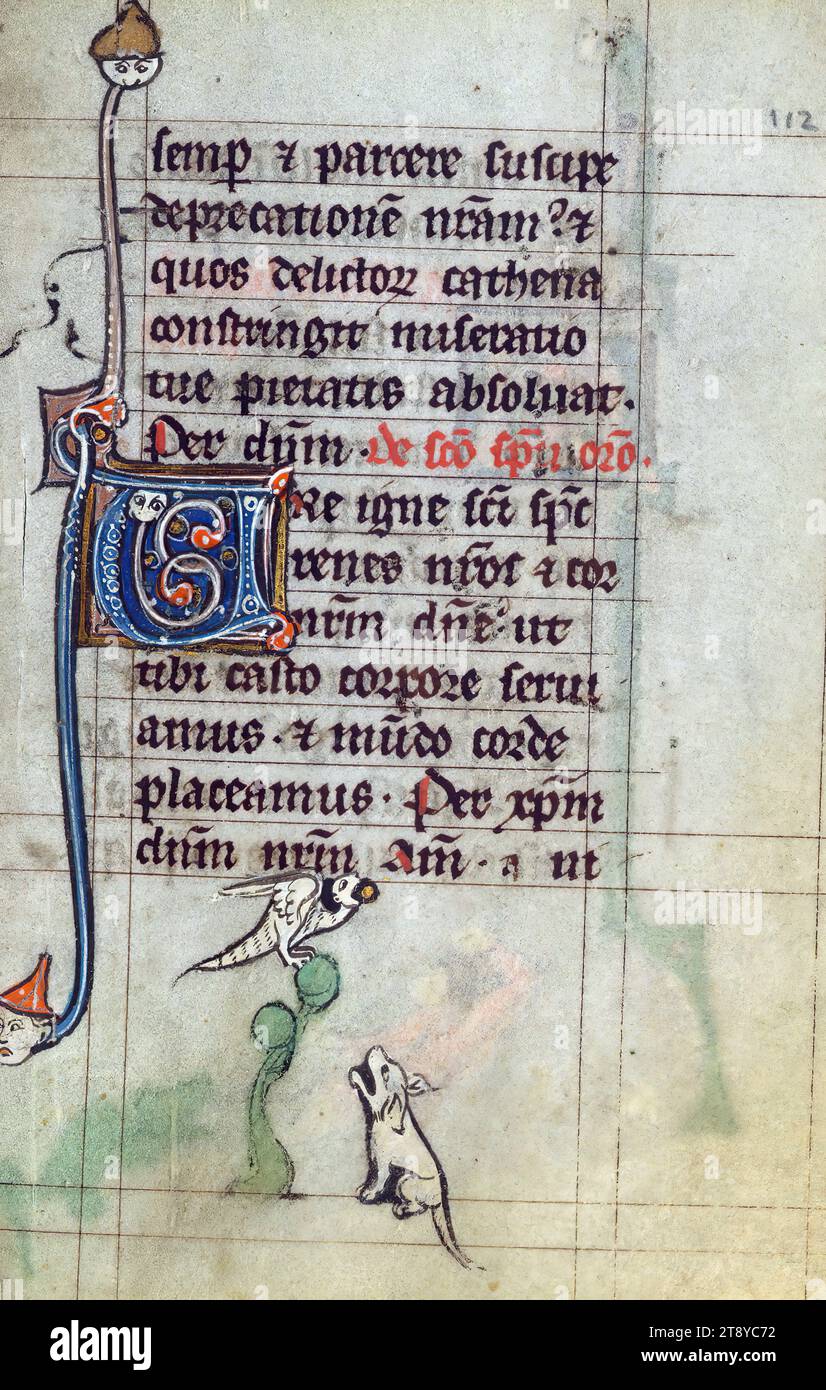 112
semp ⁊ parcere suscipe
deprecationē nr̄am? ⁊
quos delictoꝝ cathena
constringit miseratio
tue pietatis absoluat.
Per dn̄m. de sc̄o sp̄u or̄o.
URe igne sc̄i sp̄c
renes nr̄os ⁊ cor
nr̄m dn̄e ut
tibi casto corpore serui
amus. ⁊ mūdo corde
placeamus. Per xp̄m
dn̄m nr̄m Am̄. a ut
alamy
alamy
alamy
alamy
alamy
Image ID: 2T8YC72
www.alamy.com